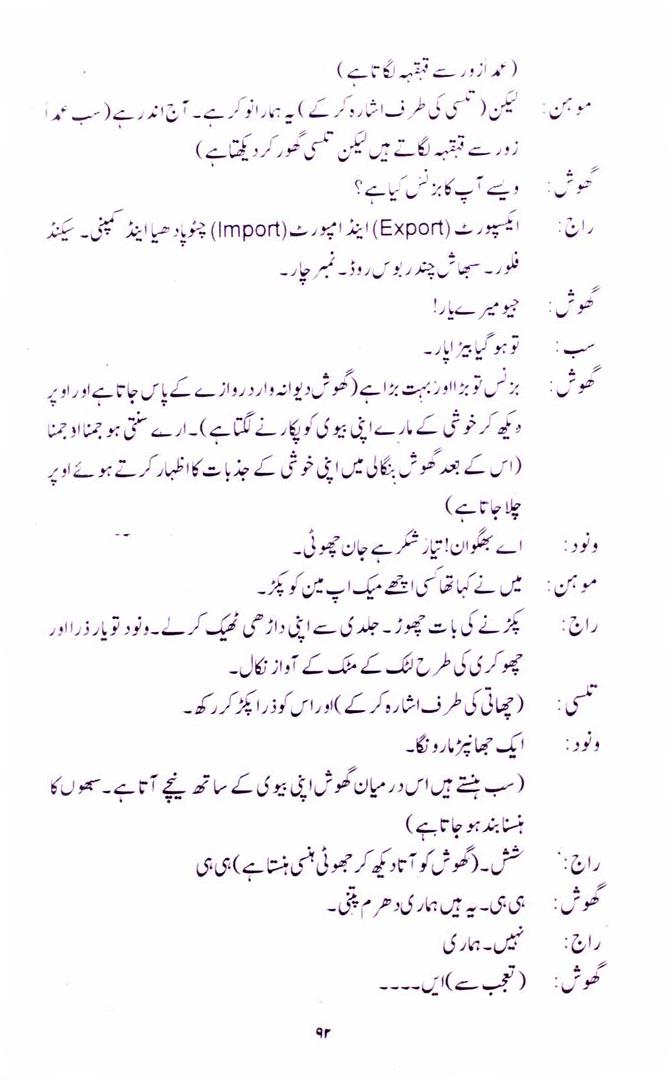 (عمداً زور سے قہقہہ لگاتا ہے)
موہن: لیکن (تلسی کی طرف اشارہ کر کے) یہ ہمارا نوکر ہے۔ آج اندر ہے (سب عمداً
زور سے قہقہہ لگاتے ہیں لیکن تلسی گھور کر دیکھتا ہے)
گھوش: ویسے آپ کا بزنس کیا ہے؟
راج: ایکسپورٹ (Export) اینڈ امپورٹ (Import) چٹوپادھیا اینڈ کمپنی۔ سیکنڈ
فلور۔ سبھاش چندر بوس روڈ۔ نمبر چار۔
گھوش: جیو میرے یار!
سب: تو ہو گیا بیڑا پار۔
گھوش: بزنس تو بڑا اور بہت بڑا ہے (گھوش دیوانہ وار دروازے کے پاس جاتا ہے اور اوپر
دیکھ کر خوشی کے مارے اپنی بیوی کو پکارنے لگتا ہے)۔ ارے سنتی ہو جمنا او جمنا
(اس کے بعد گھوش بنگالی میں اپنی خوشی کے جذبات کا اظہار کرتے ہوئے اوپر
چلا جاتا ہے)
ونود: اے بھگوان! تیرا شکر ہے جان چھوٹی۔
موہن: میں نے کہا تھا کسی اچھے میک اپ مین کو پکڑ۔
راج: پکڑنے کی بات چھوڑ۔ جلدی سے اپنی داڑھی ٹھیک کرلے۔ ونود تو یار ذرا اور
چھوکری کی طرح لٹک کے مٹک کے آواز نکال۔
تلسی: (چھاتی کی طرف اشارہ کر کے) اور اس کو ذرا پکڑ کر رکھ۔
ونود: ایک جھانپڑ مارونگا۔
(سب ہنستے ہیں اس درمیان گھوش اپنی بیوی کے ساتھ نیچے آتا ہے۔ سبھوں کا
ہنسنا بند ہو جاتا ہے)
راج: شش۔ (گھوش کو آتا دیکھ کر جھوٹی ہنسی ہنستا ہے) ہی ہی
گھوش: ہی ہی۔ یہ ہیں ہماری دھرم پتنی۔
راج: نہیں۔ ہماری
گھوش: (تعجب سے) ایں۔۔۔۔
۹۲